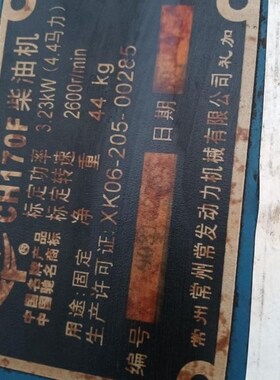 CH170F 柴油机
标定功率 3.23KW (4.4马力)
标定转速 2600r/min
净重 44 kg
中国名牌产品
中國馳名商标
用途: 固定
生产许可证: XK06-205-00285
编号
日期
常州常发动力机械有限公司